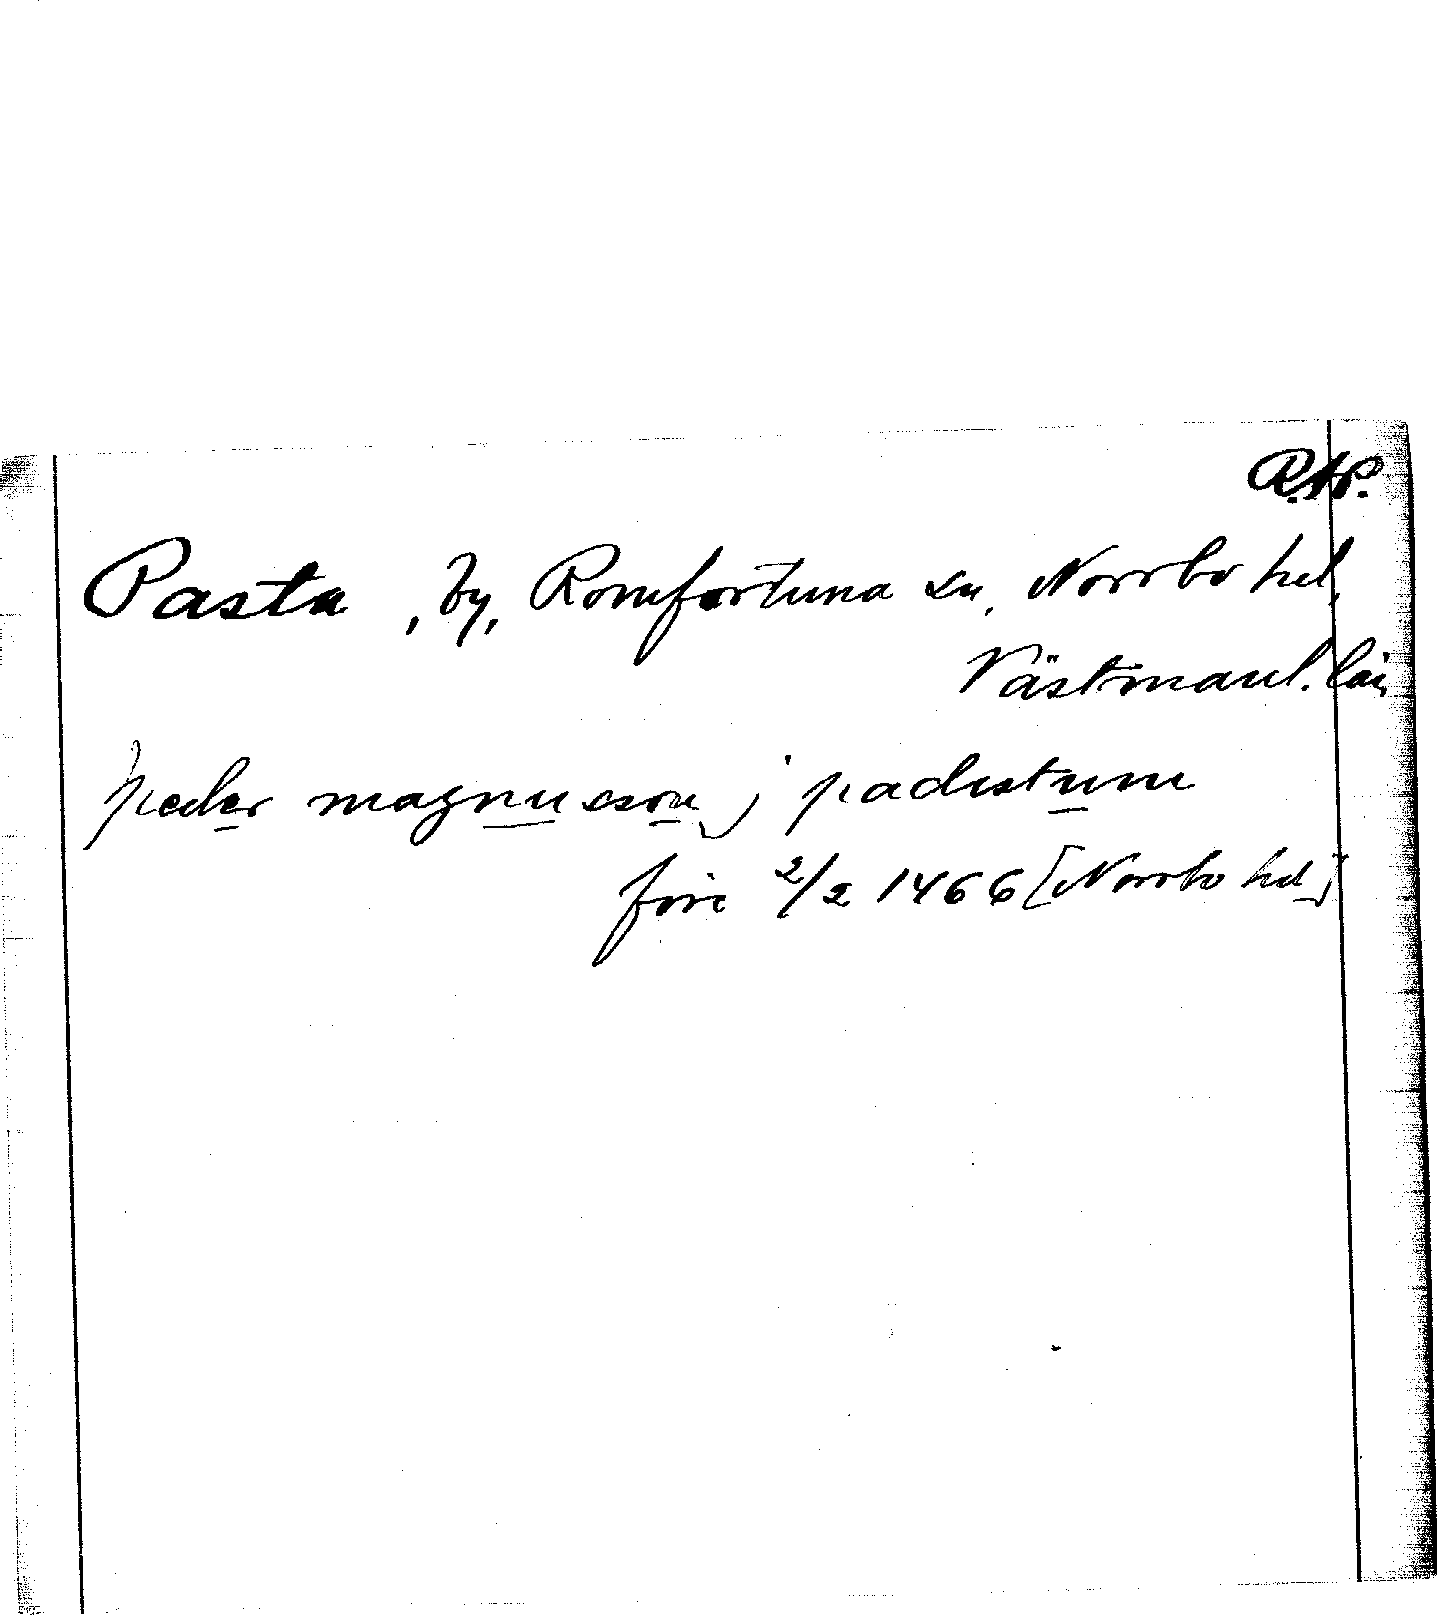 R.A.P.
Pasta, by, Romfartuna sn, Norrbo hd,
Västmanl. län
peder magnusson j padistum
före 2/2 1466 [Norrbo hd]